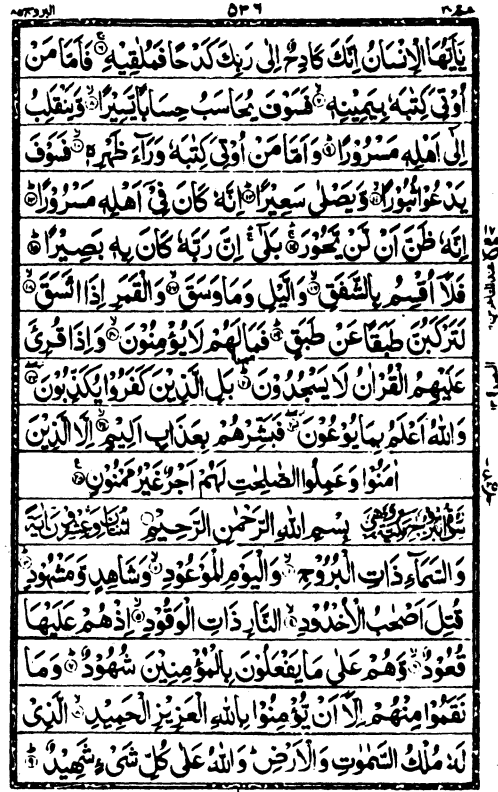 البروج ٨٥ ٥٣٦ عمّ ٣٠
يٰۤاَيُّهَا الْاِنْسَانُ اِنَّكَ كَادِحٌ اِلٰى رَبِّكَ كَدْحًا فَمُلٰقِيْهِ ۚ﴿۶﴾ فَاَمَّا مَنْ
اُوْتِيَ كِتٰبَهٗ بِيَمِيْنِهٖ ۙ﴿۷﴾ فَسَوْفَ يُحَاسَبُ حِسَابًا يَّسِيْرًا ۙ﴿۸﴾ وَّيَنْقَلِبُ
اِلٰۤى اَهْلِهٖ مَسْرُوْرًا ؕ﴿۹﴾ وَاَمَّا مَنْ اُوْتِيَ كِتٰبَهٗ وَرَآءَ ظَهْرِهٖ ۙ﴿۱۰﴾ فَسَوْفَ
يَدْعُوْا ثُبُوْرًا ۙ﴿۱۱﴾ وَّيَصْلٰى سَعِيْرًا ؕ﴿۱۲﴾ اِنَّهٗ كَانَ فِيْۤ اَهْلِهٖ مَسْرُوْرًا ؕ﴿۱۳﴾
اِنَّهٗ ظَنَّ اَنْ لَّنْ يَّحُوْرَ ۚ﴿۱۴﴾ بَلٰۤى ۚ اِنَّ رَبَّهٗ كَانَ بِهٖ بَصِيْرًا ؕ﴿۱۵﴾
فَلَاۤ اُقْسِمُ بِالشَّفَقِ ۙ﴿۱۶﴾ وَالَّيْلِ وَمَا وَسَقَ ۙ﴿۱۷﴾ وَالْقَمَرِ اِذَا اتَّسَقَ ۙ﴿۱۸﴾
لَتَرْكَبُنَّ طَبَقًا عَنْ طَبَقٍ ؕ﴿۱۹﴾ فَمَا لَهُمْ لَا يُؤْمِنُوْنَ ۙ﴿۲۰﴾ وَاِذَا قُرِئَ
عَلَيْهِمُ الْقُرْاٰنُ لَا يَسْجُدُوْنَ ؕ﴿۲۱﴾ بَلِ الَّذِيْنَ كَفَرُوْا يُكَذِّبُوْنَ ۖ﴿۲۲﴾
وَاللّٰهُ اَعْلَمُ بِمَا يُوْعُوْنَ ۖ﴿۲۳﴾ فَبَشِّرْهُمْ بِعَذَابٍ اَلِيْمٍ ۙ﴿۲۴﴾ اِلَّا الَّذِيْنَ
اٰمَنُوْا وَعَمِلُوا الصّٰلِحٰتِ لَهُمْ اَجْرٌ غَيْرُ مَمْنُوْنٍ ﴿۲۵﴾
بِسْمِ اللّٰهِ الرَّحْمٰنِ الرَّحِيْمِ
وَالسَّمَآءِ ذَاتِ الْبُرُوْجِ ۙ﴿۱﴾ وَالْيَوْمِ الْمَوْعُوْدِ ۙ﴿۲﴾ وَشَاهِدٍ وَّمَشْهُوْدٍ ؕ﴿۳﴾
قُتِلَ اَصْحٰبُ الْاُخْدُوْدِ ۙ﴿۴﴾ النَّارِ ذَاتِ الْوَقُوْدِ ۙ﴿۵﴾ اِذْ هُمْ عَلَيْهَا
قُعُوْدٌ ۙ﴿۶﴾ وَّهُمْ عَلٰى مَا يَفْعَلُوْنَ بِالْمُؤْمِنِيْنَ شُهُوْدٌ ؕ﴿۷﴾ وَمَا
نَقَمُوْا مِنْهُمْ اِلَّاۤ اَنْ يُّؤْمِنُوْا بِاللّٰهِ الْعَزِيْزِ الْحَمِيْدِ ۙ﴿۸﴾ الَّذِيْ
لَهٗ مُلْكُ السَّمٰوٰتِ وَالْاَرْضِ ؕ وَاللّٰهُ عَلٰى كُلِّ شَيْءٍ شَهِيْدٌ ؕ﴿۹﴾